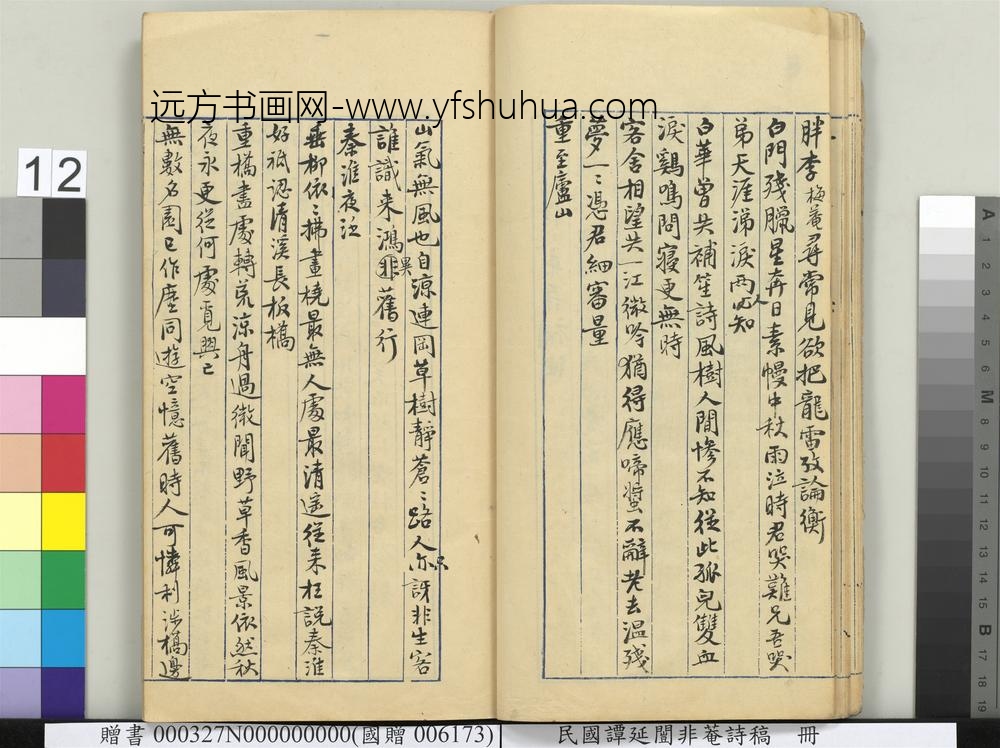 远方书画网-www.yfshuhua.com
胖李梅菴尋常見欲把龍雷攷論衡
白門殘臘星奔日素幔中秋雨泣時君哭難兄吾哭
弟天涯涕淚兩人知
白華曾共補笙詩風樹人間慘不知從此孤兒雙血
淚鷄鳴問寢更無時
客舍相望共一江微吟猶得應啼螿不辭老去溫殘
夢一一憑君細審量
重至廬山
山氣無風也自涼連岡草樹靜蒼蒼路人亦只訝非生客
誰識來鴻非舊行
秦淮夜泛
垂柳依依拂畫橈最無人處最清遙往來枉說秦淮
好祗認清溪長板橋
重橋盡處轉荒涼舟過微聞野草香風景依然秋
夜永更從何處覓興亡
無數名園已作塵同遊空憶舊時人可憐利涉橋邊
12
A 1 2 3 4 5 6 M 8 9 10 11 12 13 14 15 B 17 18 19
贈書 000327N000000000(國贈 006173)
民國譚延闓非菴詩稿 冊